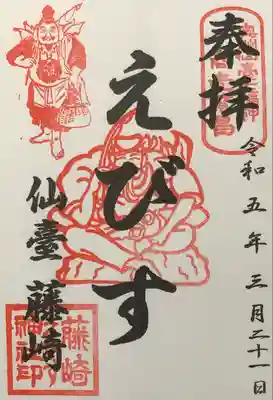 奉拝
令和五年三月二十一日
えびす
仙臺 藤崎
藤崎